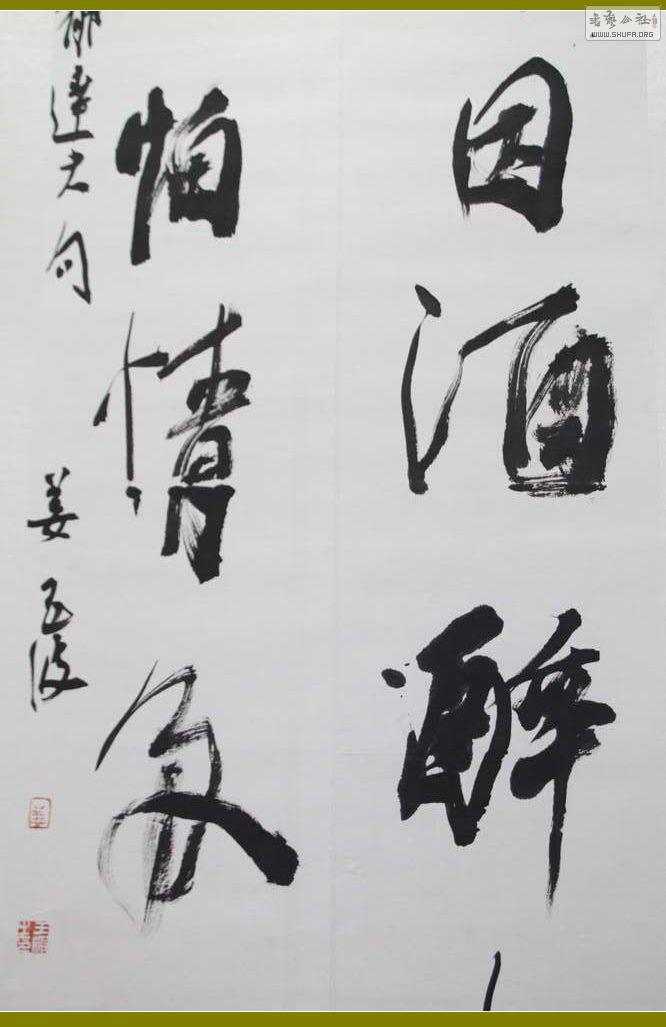 书艺公社
WWW.SHUFA.ORG
因酒醉
怕情多
郁達夫句
姜